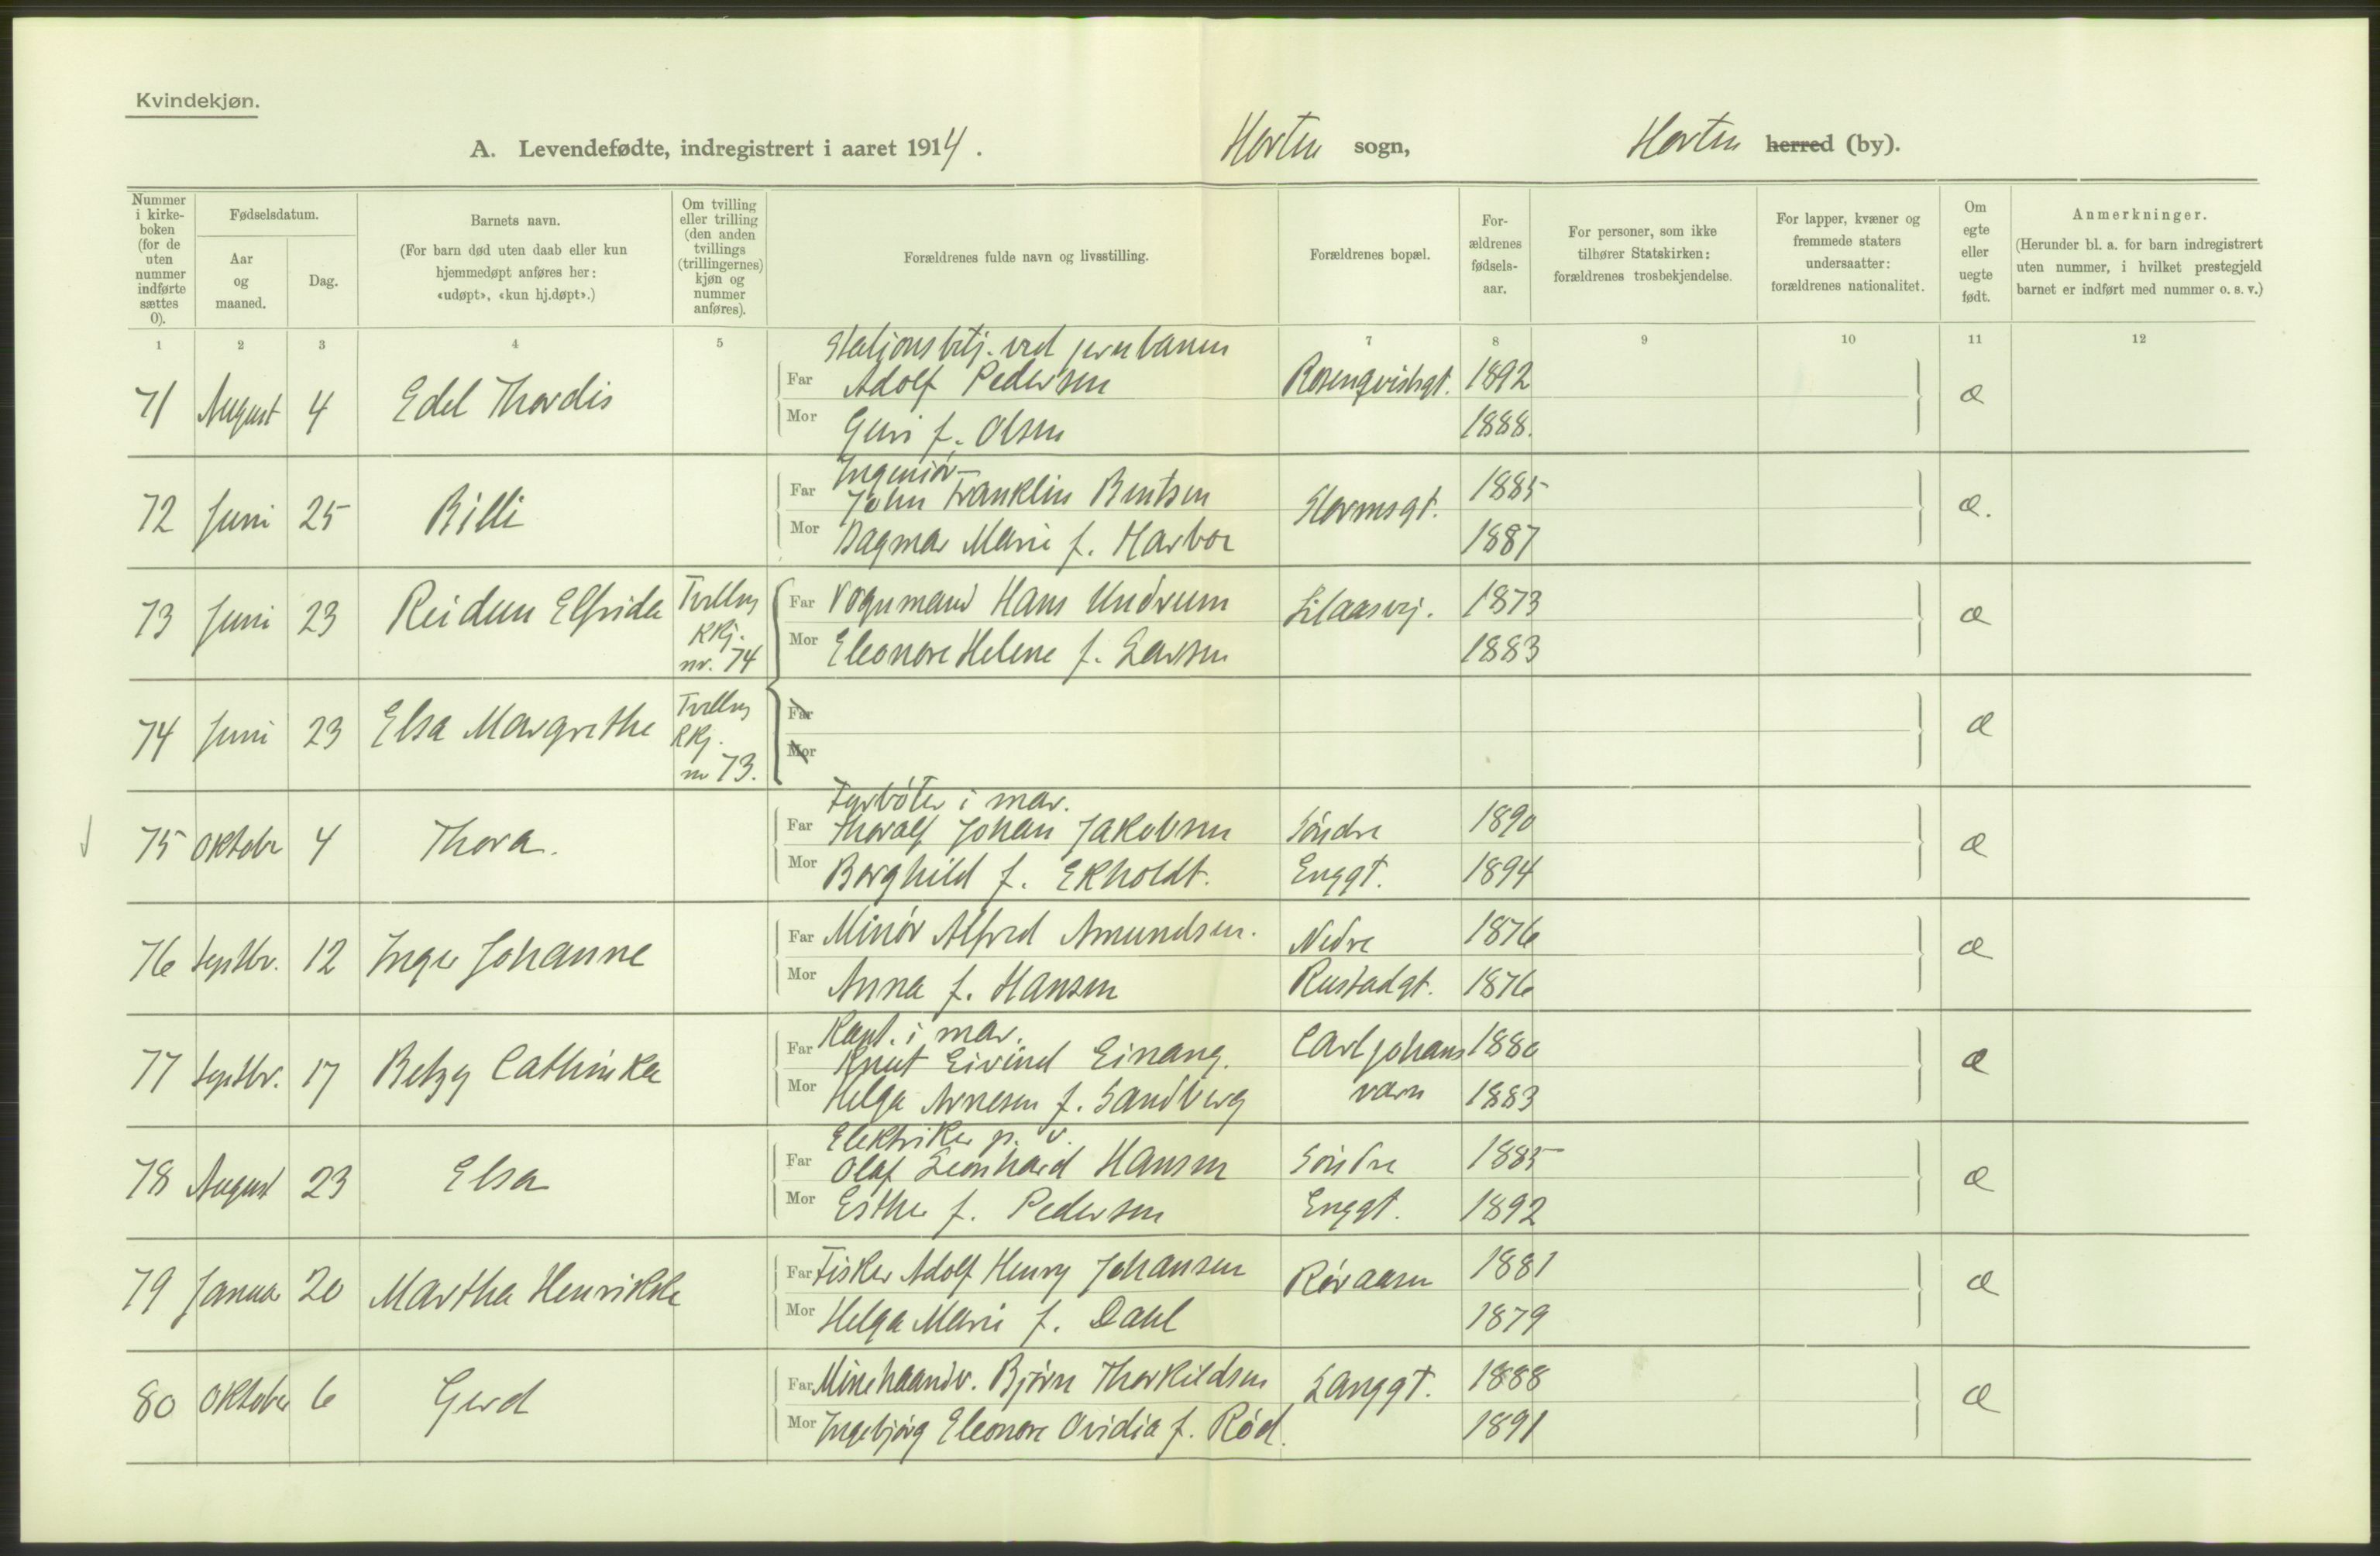 Kvindekjøn.
A. Levendefødte, indregistrert i aaret 1914. Horten sogn, Horten herred (by).
Nummer i kirke-boken (for de uten nummer indførte sættes 0).
Fødselsdatum.
Aar og maaned.
Dag.
Barnets navn.
(For barn død uten daab eller kun hjemmedøpt anføres her: «udøpt», «kun hj.døpt».)
Om tvilling eller trilling (den anden tvillings (trillingernes) kjøn og nummer anføres).
Forældrenes fulde navn og livsstilling.
Forældrenes bopæl.
For-ældrenes fødsels-aar.
For personer, som ikke tilhører Statskirken: forældrenes trosbekjendelse.
For lapper, kvæner og fremmede staters undersaatter: forældrenes nationalitet.
Om egte eller uegte født.
Anmerkninger.
(Herunder bl. a. for barn indregistrert uten nummer, i hvilket prestegjeld barnet er indført med nummer o. s. v.)
1 2 3 4 5 7 8 9 10 11 12
Stationsbtj. ved jernbanen
71 August 4 Edel Thordis Far Adolf Pedersen Rosenqvistsgt. 1892 æ
Mor Guri f. Olsen 1888.
Ingeniør
72 Juni 25 Billi Far John Franklin Bentsen Stormsgt. 1885 æ.
Mor Dagmar Marie f. Harboe 1887
73 Juni 23 Reidun Elfrida Tvilling Kkj. nr. 74 Far Vognmand Hans Undrum Liaasvej. 1873 æ
Mor Eleonore Helene f. Larsen 1883
74 Juni 23 Elsa Margrethe Tvilling Kkj. nr 73. Far æ
Mor
Fyrbøter i mar.
75 Oktober 4 Thora. Far Thoralf Johan Jakobsen Søndre 1890 æ
Mor Borghild f. Ekholdt. Enggt. 1894
76 Septbr. 12 Inger Johanne Far Minør Alfred Amundsen. Nedre 1876 æ
Mor Anna f. Hansen Rustadgt. 1876
Kapt. i mar.
77 Septbr. 17 Betzy Cathinka Far Knut Eivind Einang. Carljohans 1880 æ
Mor Helga Arnesen f. Sandberg værn 1883
Elektriker p. v.
78 August 23 Elsa Far Olaf Leonhard Hansen Søndre 1885 æ
Mor Esther f. Pedersen Enggt. 1892
79 Januar 20 Martha Henrikke Far Fisker Adolf Henry Johansen Røraasen 1881 æ
Mor Helga Marie f. Dahl 1879
80 Oktober 6 Gerd Far Minehaandv. Bjørn Thorkildsen Langgt. 1888 æ
Mor Ingebjørg Eleonore Ovidia f. Rød. 1891